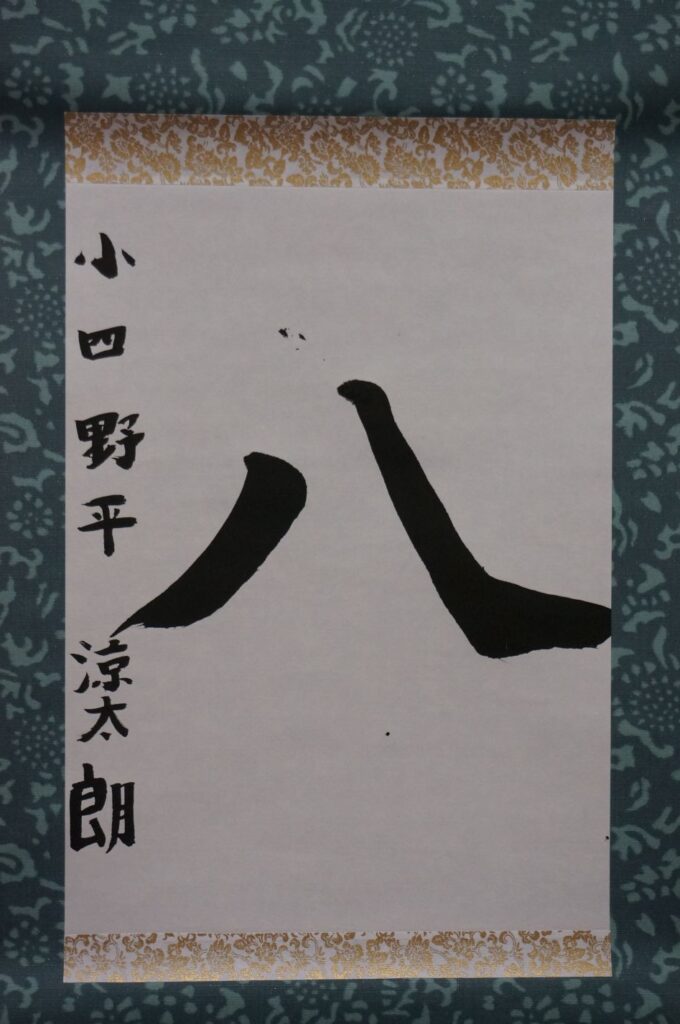 八
小四野平涼太朗